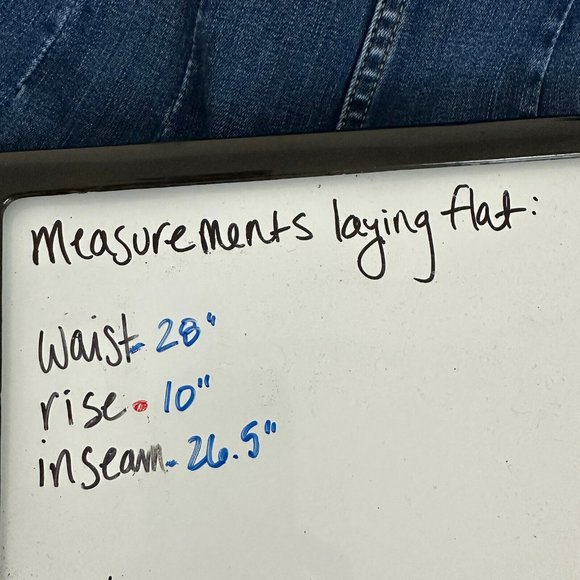 Measurements laying flat:
Waist- 28"
rise. 10"
inseam- 26.5"